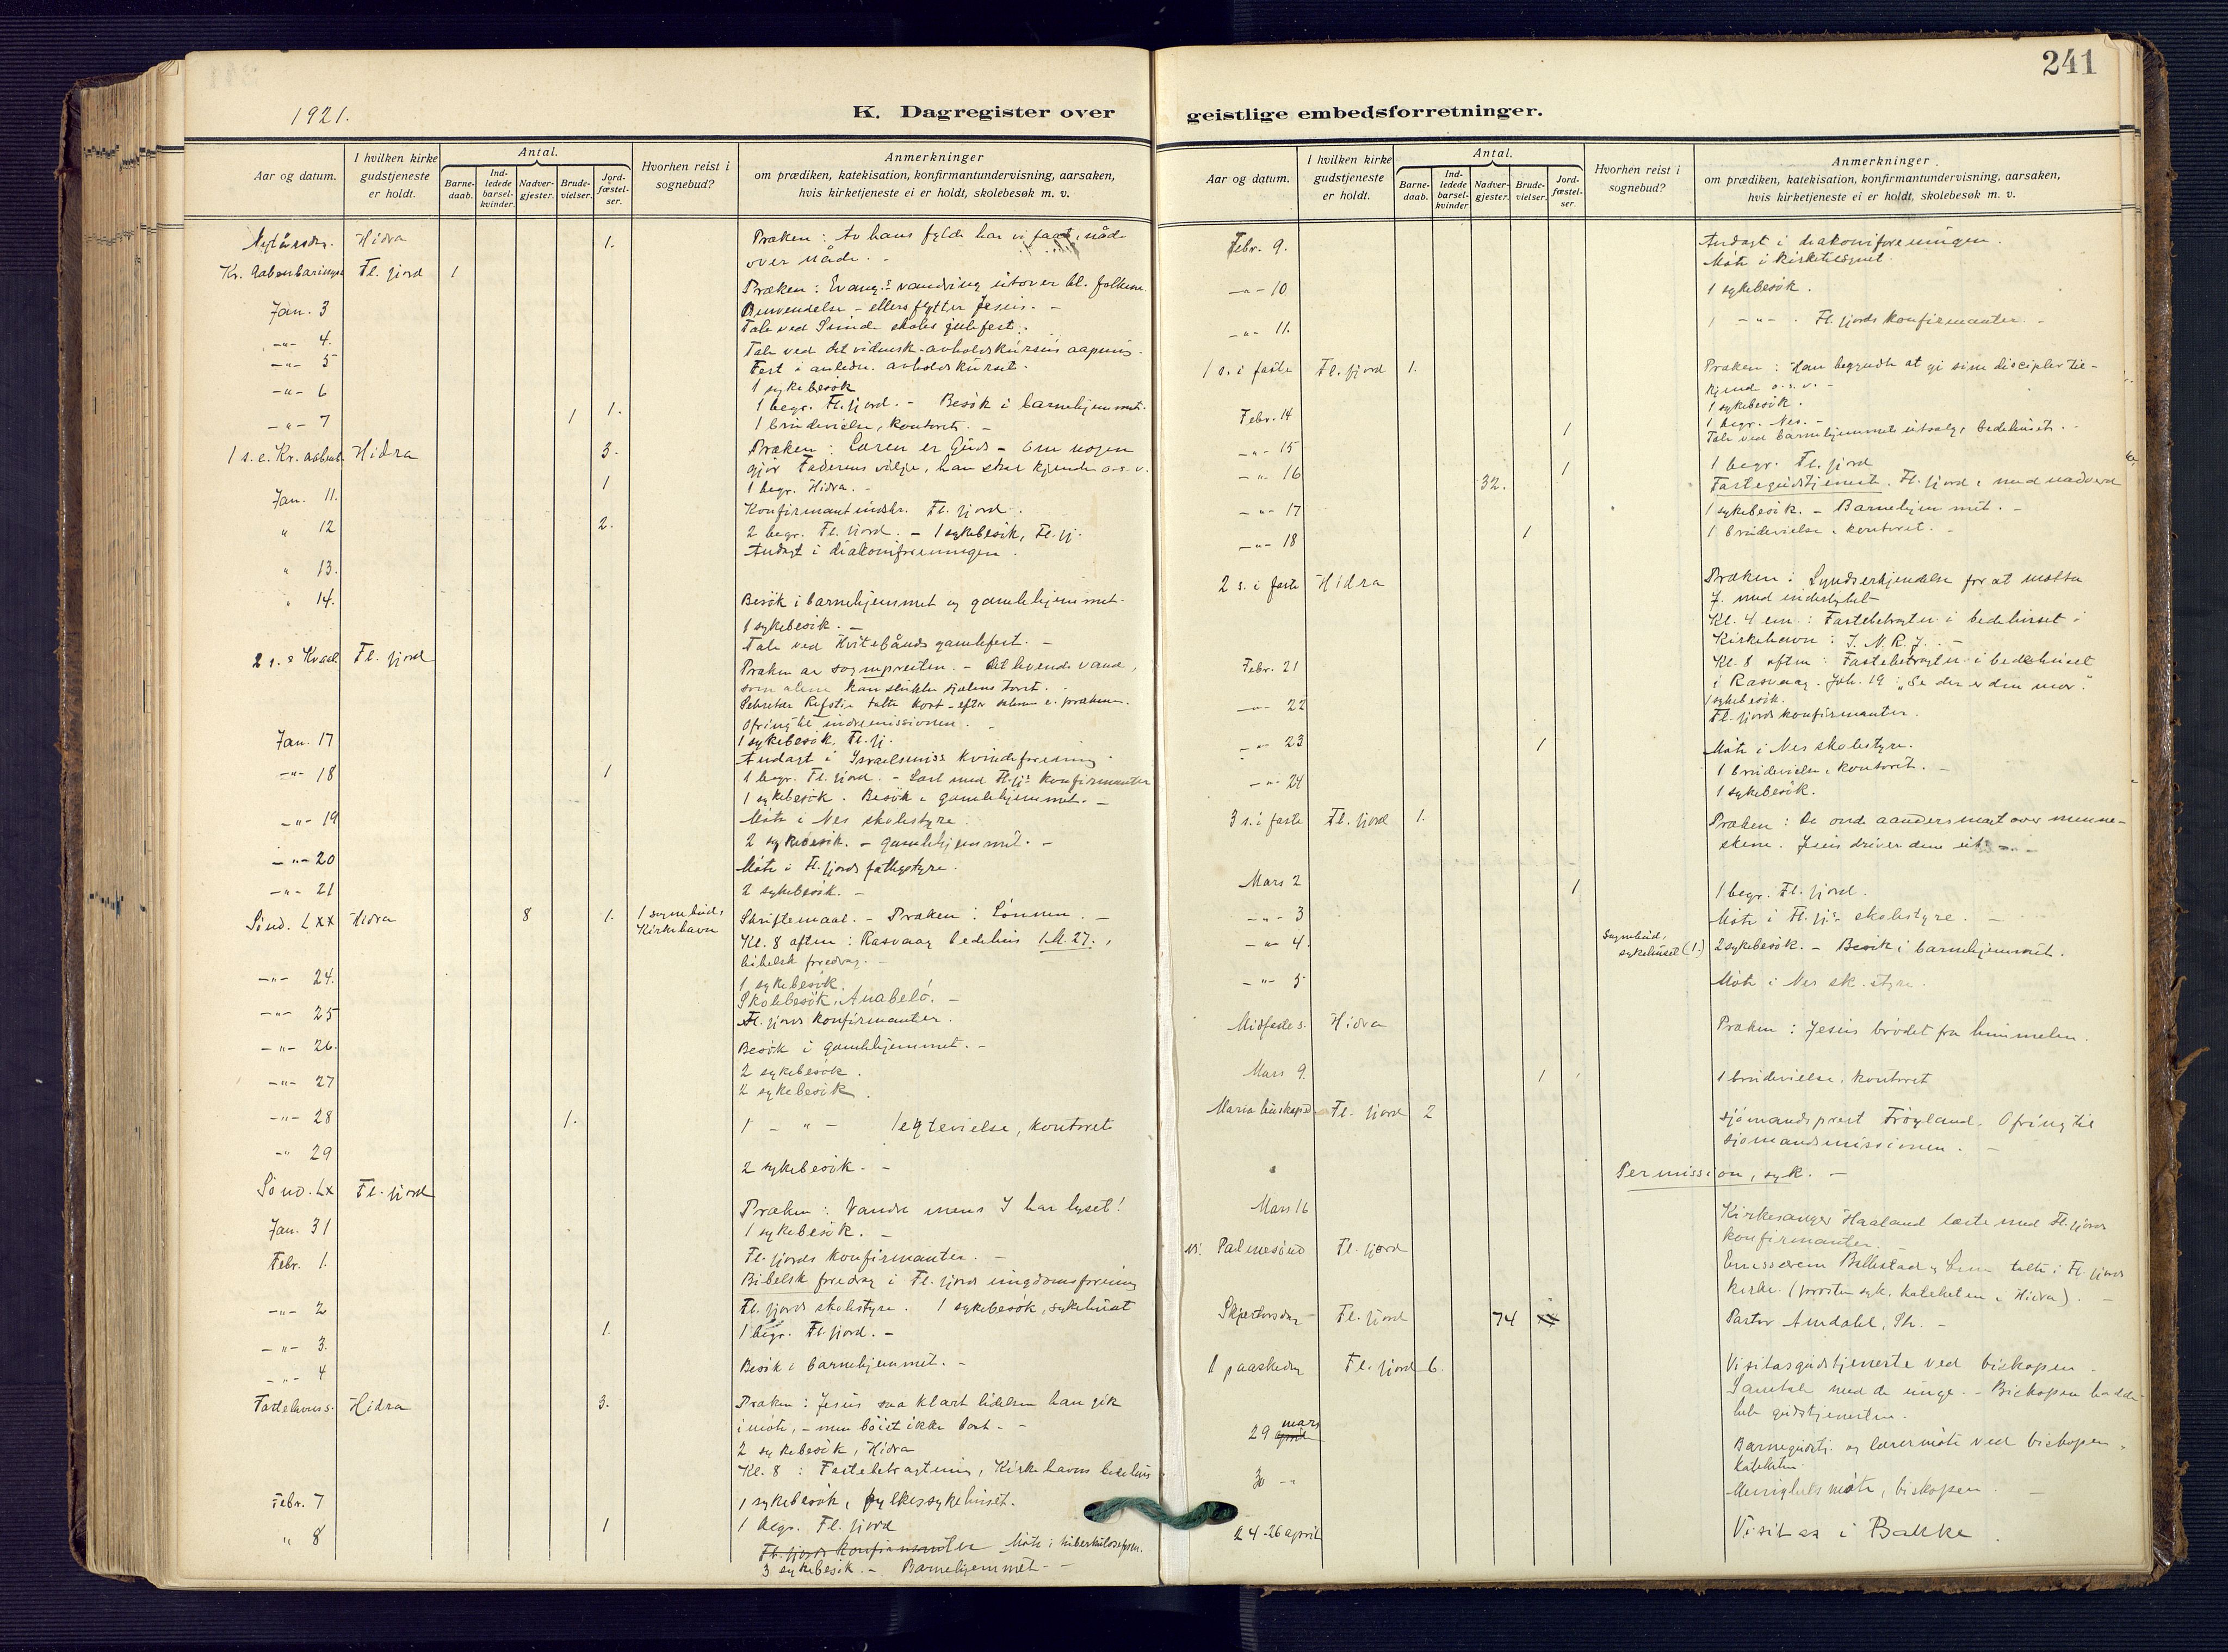 1921.
K. Dagregister over
Aar og datum.
I hvilken kirke gudstjeneste er holdt.
Antal.
Barnedaab.
Indledede barselkvinder.
Nadvergjester.
Brudevielser.
Jordfæstelser.
Hvorhen reist i sognebud?
Anmerkninger
om prædiken, katekisation, konfirmantundervisning, aarsaken,
hvis kirketjeneste ei er holdt, skolebesøk m. v.
Nytårsdag. Hidra 1. Præken: Av hans fylde har vi faat, nåde
over nåde. -
Kr. aabenbaringss Fl. fjord 1
Præken: Evang.s vandring utover bl. folkene.
Omvendelse - ellers flytter Jesus. -
Jan. 3 Tale ved Sunde skoles julefest.
-"- 4. Tale ved det vidensk. avholdskursus aapning.
-"- 5 Fest i anledn. avholdskurset.
-"- 6 1 sykebesøk
-"- 7 1 1. 1 begr. Fl. fjord. - Besøk i barnehjemmet.
1 brudevielse, kontoret. -
1 s. e. Kr. aabenb. Hidra 3. Præken: Læren er Guds - om nogen
gjør Faderens vilje, han skal kjende o.s.v.
Jan. 11. 1 1 begr. Hidra. -
Konfirmantindskr. Fl. fjord.
" 12 2. 2 begr. Fl. fjord. - 1 sykebesøk, Fl. fj.
Andagt i diakoniforeningen.
" 13.
" 14. Besøk i barnehjemmet og gamlehjemmet.
1 sykebesøk. -
Tale ved Hvitebånds gamlefest. -
2 s. e. Fl. fjord
Præken av sognepresten. - Det levende vand,
som alene kan slukke sjælens tørst. -
Sekretær Refstie talte kort - efter
Ofring til indremissionen. -
Jan. 17 1 sykebesøk, Fl. fj.
Andagt i Israelsmiss. kvindeforening.
-"- 18 1 1 begr. Fl. fjord. - Læst med Fl. fj.s konfirmanter
1 sykebesøk. Besøk i gamlehjemmet. -
-"- 19 Møte i Nes skolestyre.
2 sykebesøk. - gamlehjemmet. -
-"- 20 Møte i Fl. fjords fattigstyre.
-"- 21 2 sykebesøk. -
Sønd. LXX Hidra 8 1. 1 sognebud, Kirkehavn Skriftemaal. - Præken: Lønnen. -
Kl. 8 aften: Rasvaag bedehus 1.M.27.,
bibelsk foredrag. -
-"- 24. 1 sykebesøk.
Skolebesøk, Anabelø. -
-"- 25 Fl. fjords konfirmanter.
-"- 26. Besøk i gamlehjemmet. -
2 sykebesøk.
-"- 27 2 sykebesøk.
-"- 28 1. 1 - " - 1 egtevielse, kontoret
-" 29 2 sykebesøk. -
Sønd. LX Fl. fjord
Præken: Vandre mens I har lyset!
Jan. 31 1 sykebesøk. -
Febr. 1. Fl. fjords konfirmanter. -
Bibelsk foredrag i Fl. fjords ungdomsforening
-"- 2 Fl. fjords skolestyre. 1 sykebesøk, sykehuset
-"- 3. 1. 1 begr. Fl. fjord. -
-"- 4 Besøk i barnehjemmet. -
Fastelavnss. Hidra 3. Præken: Jesus saa klart lidelsen han gik
i møte, - men bøiet ikke bort. -
2 sykebesøk, Hidra
Kl. 8: Fastebetragtning, Kirkehavns bedehus
Febr. 7 1 sykebesøk, fylkessykehuset.
" 8 1 1 begr. Fl. fjord
Fl. fjords konfirmanter Møte i tuberkuloseforen.
3 sykebesøk. - Barnehjemmet -
241
geistlige embedsforretninger.
Aar og datum.
I hvilken kirke gudstjeneste er holdt.
Antal.
Barnedaab.
Indledede barselkvinder
Nadvergjester.
Brudevielser.
Jordfæstelser.
Hvorhen reist i sognebud?
Anmerkninger.
om prædiken, katekisation, konfirmantundervisning, aarsaken,
hvis kirketjeneste ei er holdt, skolebesøk m. v.
Febr. 9. Andagt i diakoniforeningen.
Møte i kirketilsynet.
-"- 10 1 sykebesøk.
-"- 11. 1 -"- . Fl. fjords konfirmanter. -
1 s. i faste Fl. fjord 1. Præken: Han begyndte at gi sine disciple tilkjende
o.s.v. -
Febr. 14 1 sykebesøk.
1 1 begr. Nes. -
Tale ved barnehjemmets utsalg, bedehuset. -
-"- 15 1 1 begr. Fl. fjord
-"- 16 32. Fastegudstjeneste, Fl. fjord, med nadverd
-"- 17 1 sykebesøk. - Barnehjemmet. -
-"- 18 1 1 brudevielse, kontoret. -
2 s. i faste Hidra Præken: Syndserkjendelse for at motta
J. med inderlighet
Kl. 4 em.: Fastebetragtn. i bedehuset i
Kirkehavn: J.N.R.J. -
Kl. 8 aften: Fastebetragtn. i bedehuset
i Rasvaag. Joh. 19: "Se der er din mor."
Febr. 21 1 sykebesøk.
-"- 22 Fl. fjords konfirmanter.
-"- 23 1 Møte i Nes skolestyre.
1 brudevielse, kontoret. -
-"- 24 1 sykebesøk.
3 s. i faste Fl. fjord 1. Præken: De onde aanders magt over menneskene.
Jesus driver dem ut. -
Mars 2 1 1 begr. Fl. fjord.
-"- 3 Møte i Fl. fj.s skolestyre. -
-"- 4. Sognebud, sykehuset (1.) 2 sykebesøk. - Besøk i barnehjemmet.
-"- 5 Møte i Nes sk. styre.
Midfastes. Hidra Præken: Jesus brødet fra himmelen.
Mars 9. 1 1 brudevielse, kontoret
Maria budskapsd. Fl. fjord 2 Sjømandsprest Frøyland. Ofring til
sjømandsmissionen. -
Permission, syk. -
Mars 16 Kirkesanger Haaland læste med Fl. fjords
konfirmanter.
Palmesønd Fl. fjord Emissærene talte i Fl. fjords
kirke. (presten syk. kateketen i Hidra). -
Skjærtorsdag Fl. fjord 74 Pastor Amdahl, -
1 paaskedag Fl. fjord 6. Visitasgudstjeneste ved biskopen.
Samtale med de unge. - Biskopen hadde
hele gudstjenesten.
29 april mars Barnegudstj. og lærermøte ved biskopen.
kateketen
30 -"- Menighetsmøte, biskopen. -
24-26 april Visitas i Bakke